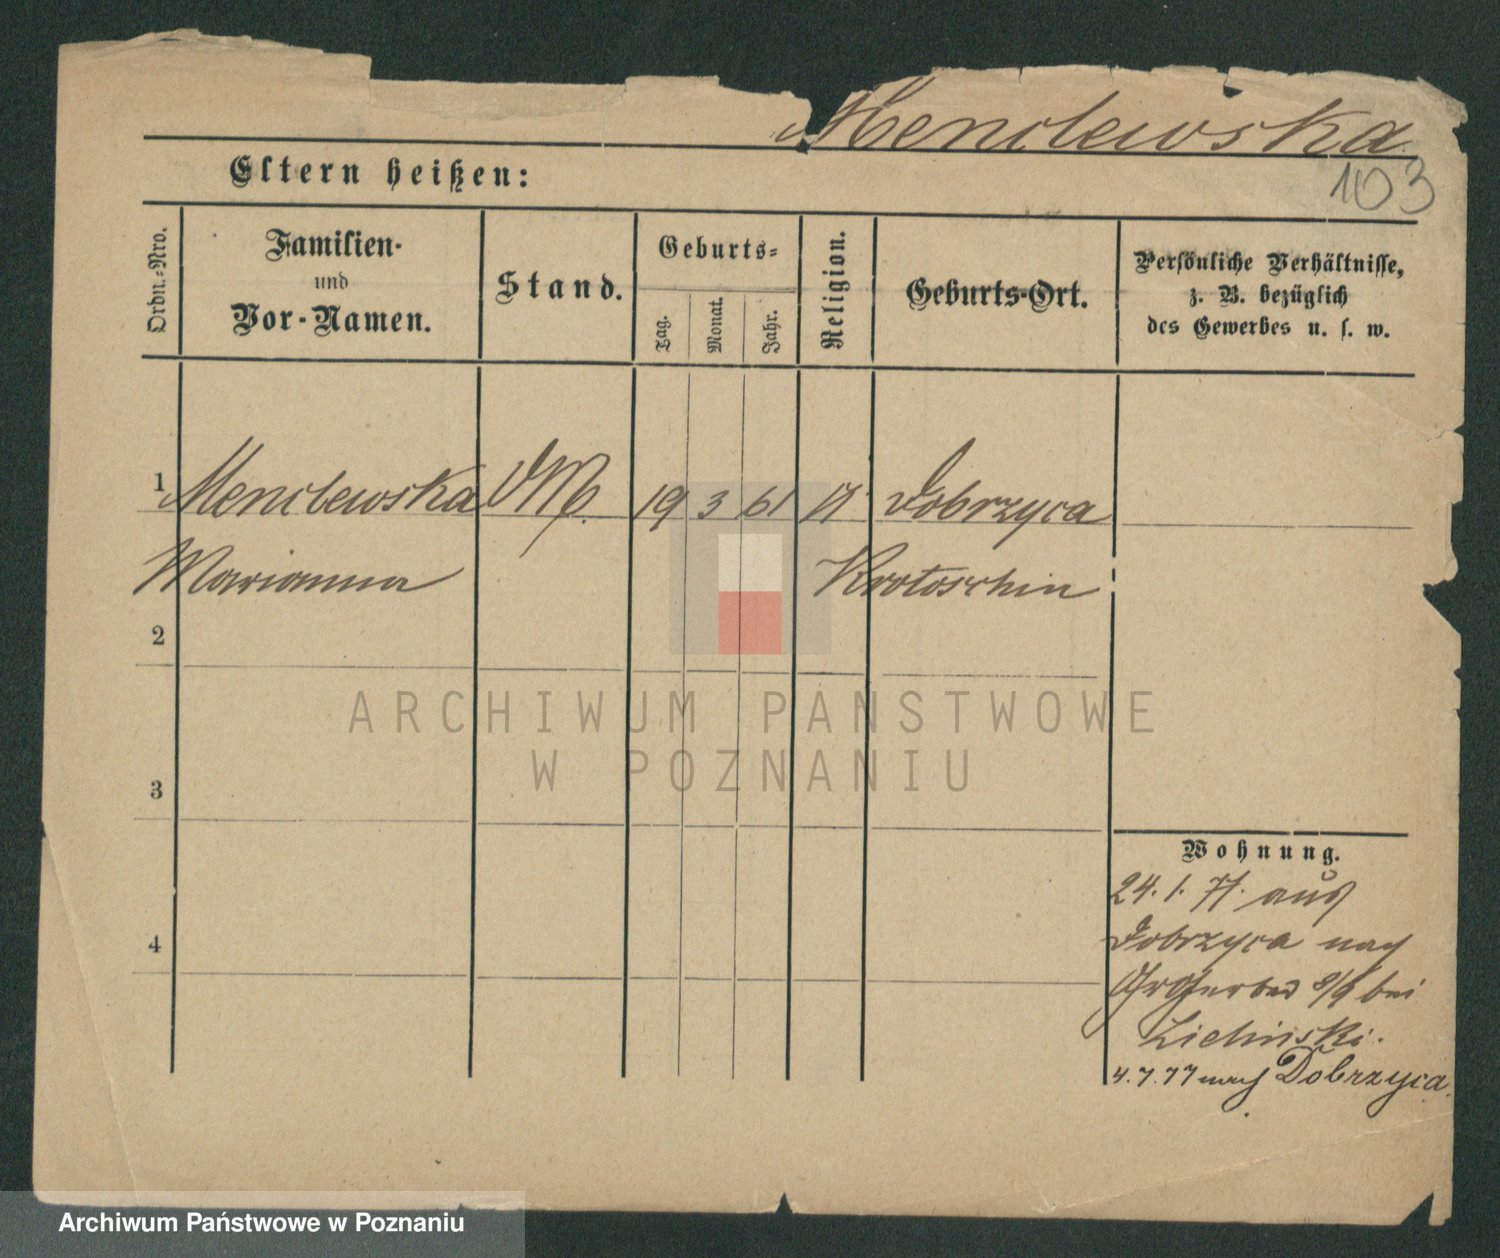 Menclewska
103
Eltern heißen:
Ordn.-Nro.
Familien-
und
Vor-Namen.
Stand.
Geburts-
Tag.
Monat.
Jahr.
Religion.
Geburts-Ort.
Persönliche Verhältnisse,
z. B. bezüglich
des Gewerbes u. s. w.
1 Menclewska 19 3 61 Dobrzyca
Marianna Krotoschin
2
3
4
Wohnung.
24. 1. 77. aus
Dobrzyca nach
8/9 bei
Zielinski.
4.7.77 nach Dobrzyca.
ARCHIWUM PAŃSTWOWE
W POZNANIU
Archiwum Państwowe w Poznaniu